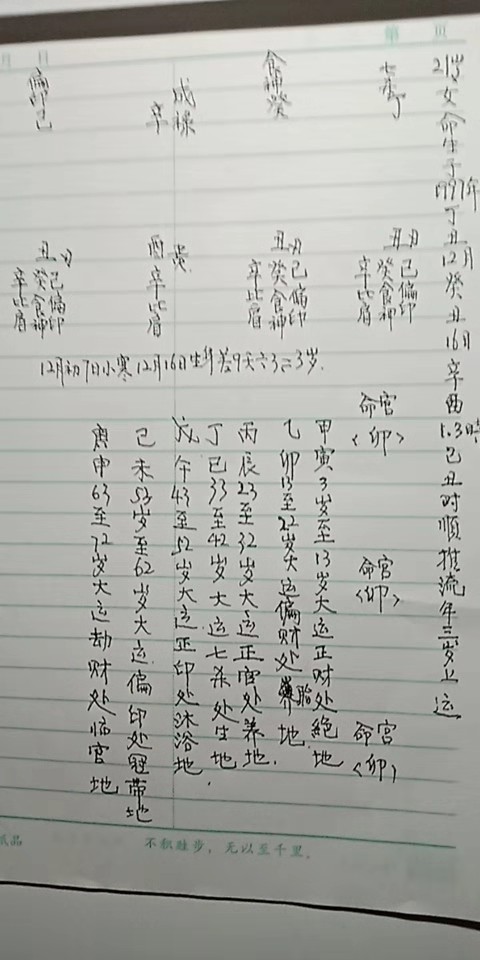 第 页
月 日
21岁女命生于1997年丁丑12月癸丑16日辛酉1.3時己丑时順推流年三岁上运
七杀丁
食神癸
戌祿
辛
偏印己
丑月
己偏印
癸食神
辛比肩
丑月
己偏印
癸食神
辛比肩
酉
辛比肩
丑月
己偏印
癸食神
辛比肩
12月初7日小寒12月16日生年差9天六3=3岁.
命宫
<卯>
命宫
<卯>
命宫
<卯>
甲寅3岁至13岁大运正财处絕地
乙卯13至22岁大运偏财处胎地.
丙辰23至32岁大运正官处养地.
丁巳33至42岁大运七杀处生地.
戊午43至52岁大运正印处沐浴地
己未53岁至62岁大运偏印处冠帶地
庚申63至72岁大运劫财处临官地
纸品
不积跬步，无以至千里.